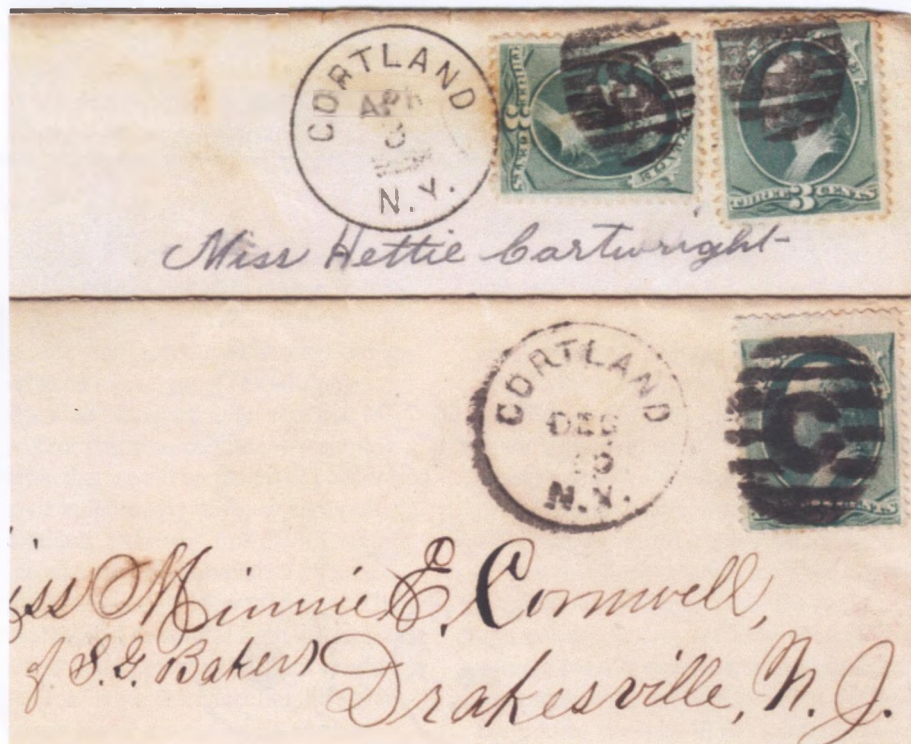 CORTLAND
APR
3
N.Y.
THREE 3 CENTS
Miss Hettie Cartwright
CORTLAND
DEC
19
N.Y.
C
CENTS
iss Minnie E. Cornwell,
of S.G. Bakers
Drakesville, N. J.